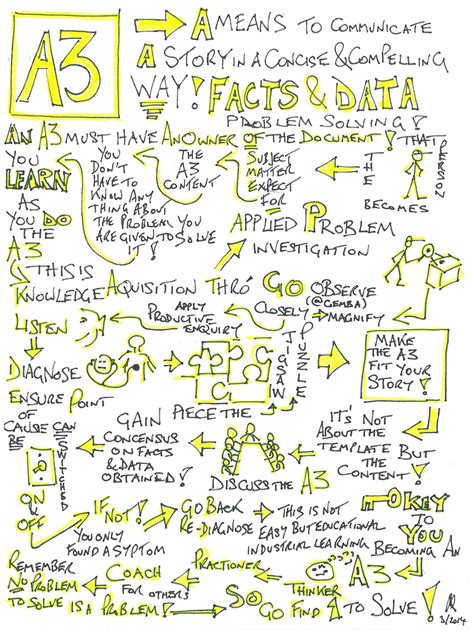 A3
A MEANS TO COMMUNICATE
A STORY IN A CONCISE & COMPELLING
WAY! FACTS & DATA
PROBLEM SOLVING!
AN A3 MUST HAVE AN OWNER OF THE DOCUMENT! THAT
PERSON
BECOMES
THE
SUBJECT
MATTER
EXPERT
FOR
THE
A3
CONTENT
YOU
DON'T
HAVE TO
KNOW ANY
THING ABOUT
THE PROBLEM YOU
ARE GIVEN TO SOLVE
IT!
YOU
LEARN
AS
YOU DO
THE
A3
APPLIED PROBLEM
INVESTIGATION
THIS IS
KNOWLEDGE AQUISITION THRO' GO OBSERVE
(@GEMBA)
CLOSELY → MAGNIFY
APPLY
PRODUCTIVE
ENQUIRY
LISTEN
DIAGNOSE
JIGSAW
PUZZLE
MAKE
THE A3
FIT YOUR
STORY!
ENSURE POINT
OF
CAUSE CAN
BE
SWITCHED
ON
OFF
GAIN
CONCENSUS
ON FACTS
& DATA
OBTAINED!
PIECE THE
DISCUSS THE A3
IT'S NOT
ABOUT THE
TEMPLATE BUT
THE
CONTENT!
IF NOT!
YOU ONLY
FOUND A SYPTOM
GO BACK
RE-DIAGNOSE
THIS IS NOT
EASY BUT EDUCATIONAL
INDUSTRIAL LEARNING
KEY
TO
YOU
BECOMING AN
A3
THINKER
PRACTIONER
COACH
FOR
OTHERS
REMEMBER
NO PROBLEM
TO SOLVE IS A PROBLEM!
SO GO FIND 1 TO SOLVE!
3/2014